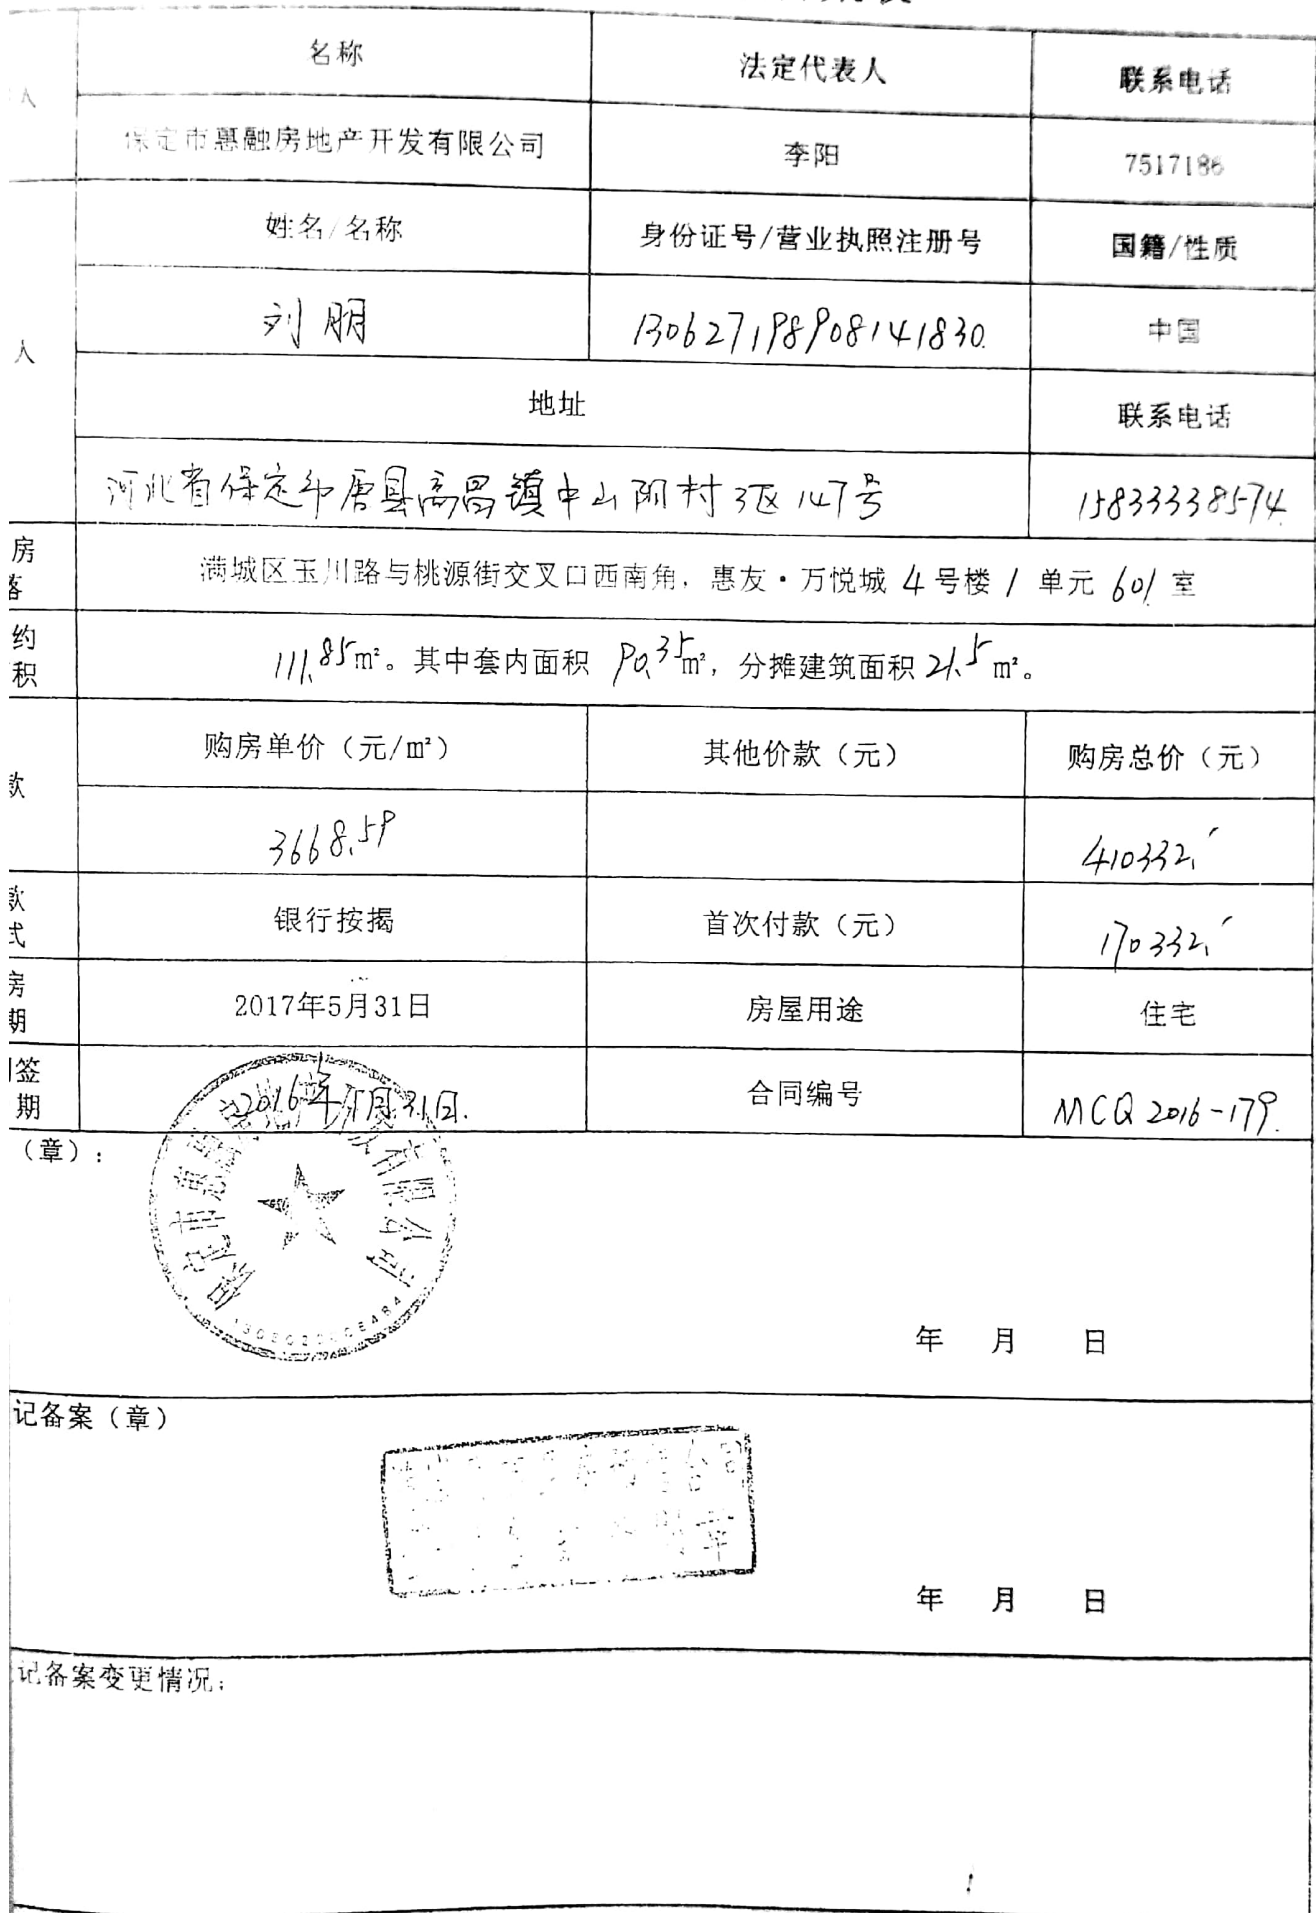 名称 法定代表人 联系电话
人
保定市惠融房地产开发有限公司 李阳 7517186
姓名/名称 身份证号/营业执照注册号 国籍/性质
刘朋 130627198908141830. 中国
人
地址 联系电话
河北省保定市唐县高昌镇中山阳村3区147号 15833338574.
房
落
满城区玉川路与桃源街交叉口西南角，惠友·万悦城 4 号楼 1 单元 601 室
约
积
111.85㎡。其中套内面积 90.35㎡，分摊建筑面积 21.5 ㎡。
购房单价（元/㎡） 其他价款（元） 购房总价（元）
款
3668.59 410332.
款
式
银行按揭 首次付款（元） 170332.
房
期
2017年5月31日 房屋用途 住宅
签
期
2016年 月31日. 合同编号 MCQ 2016-179.
（章）：
保定市惠融房地产开发有限公司
年 月 日
记备案（章）
年 月 日
记备案变更情况：